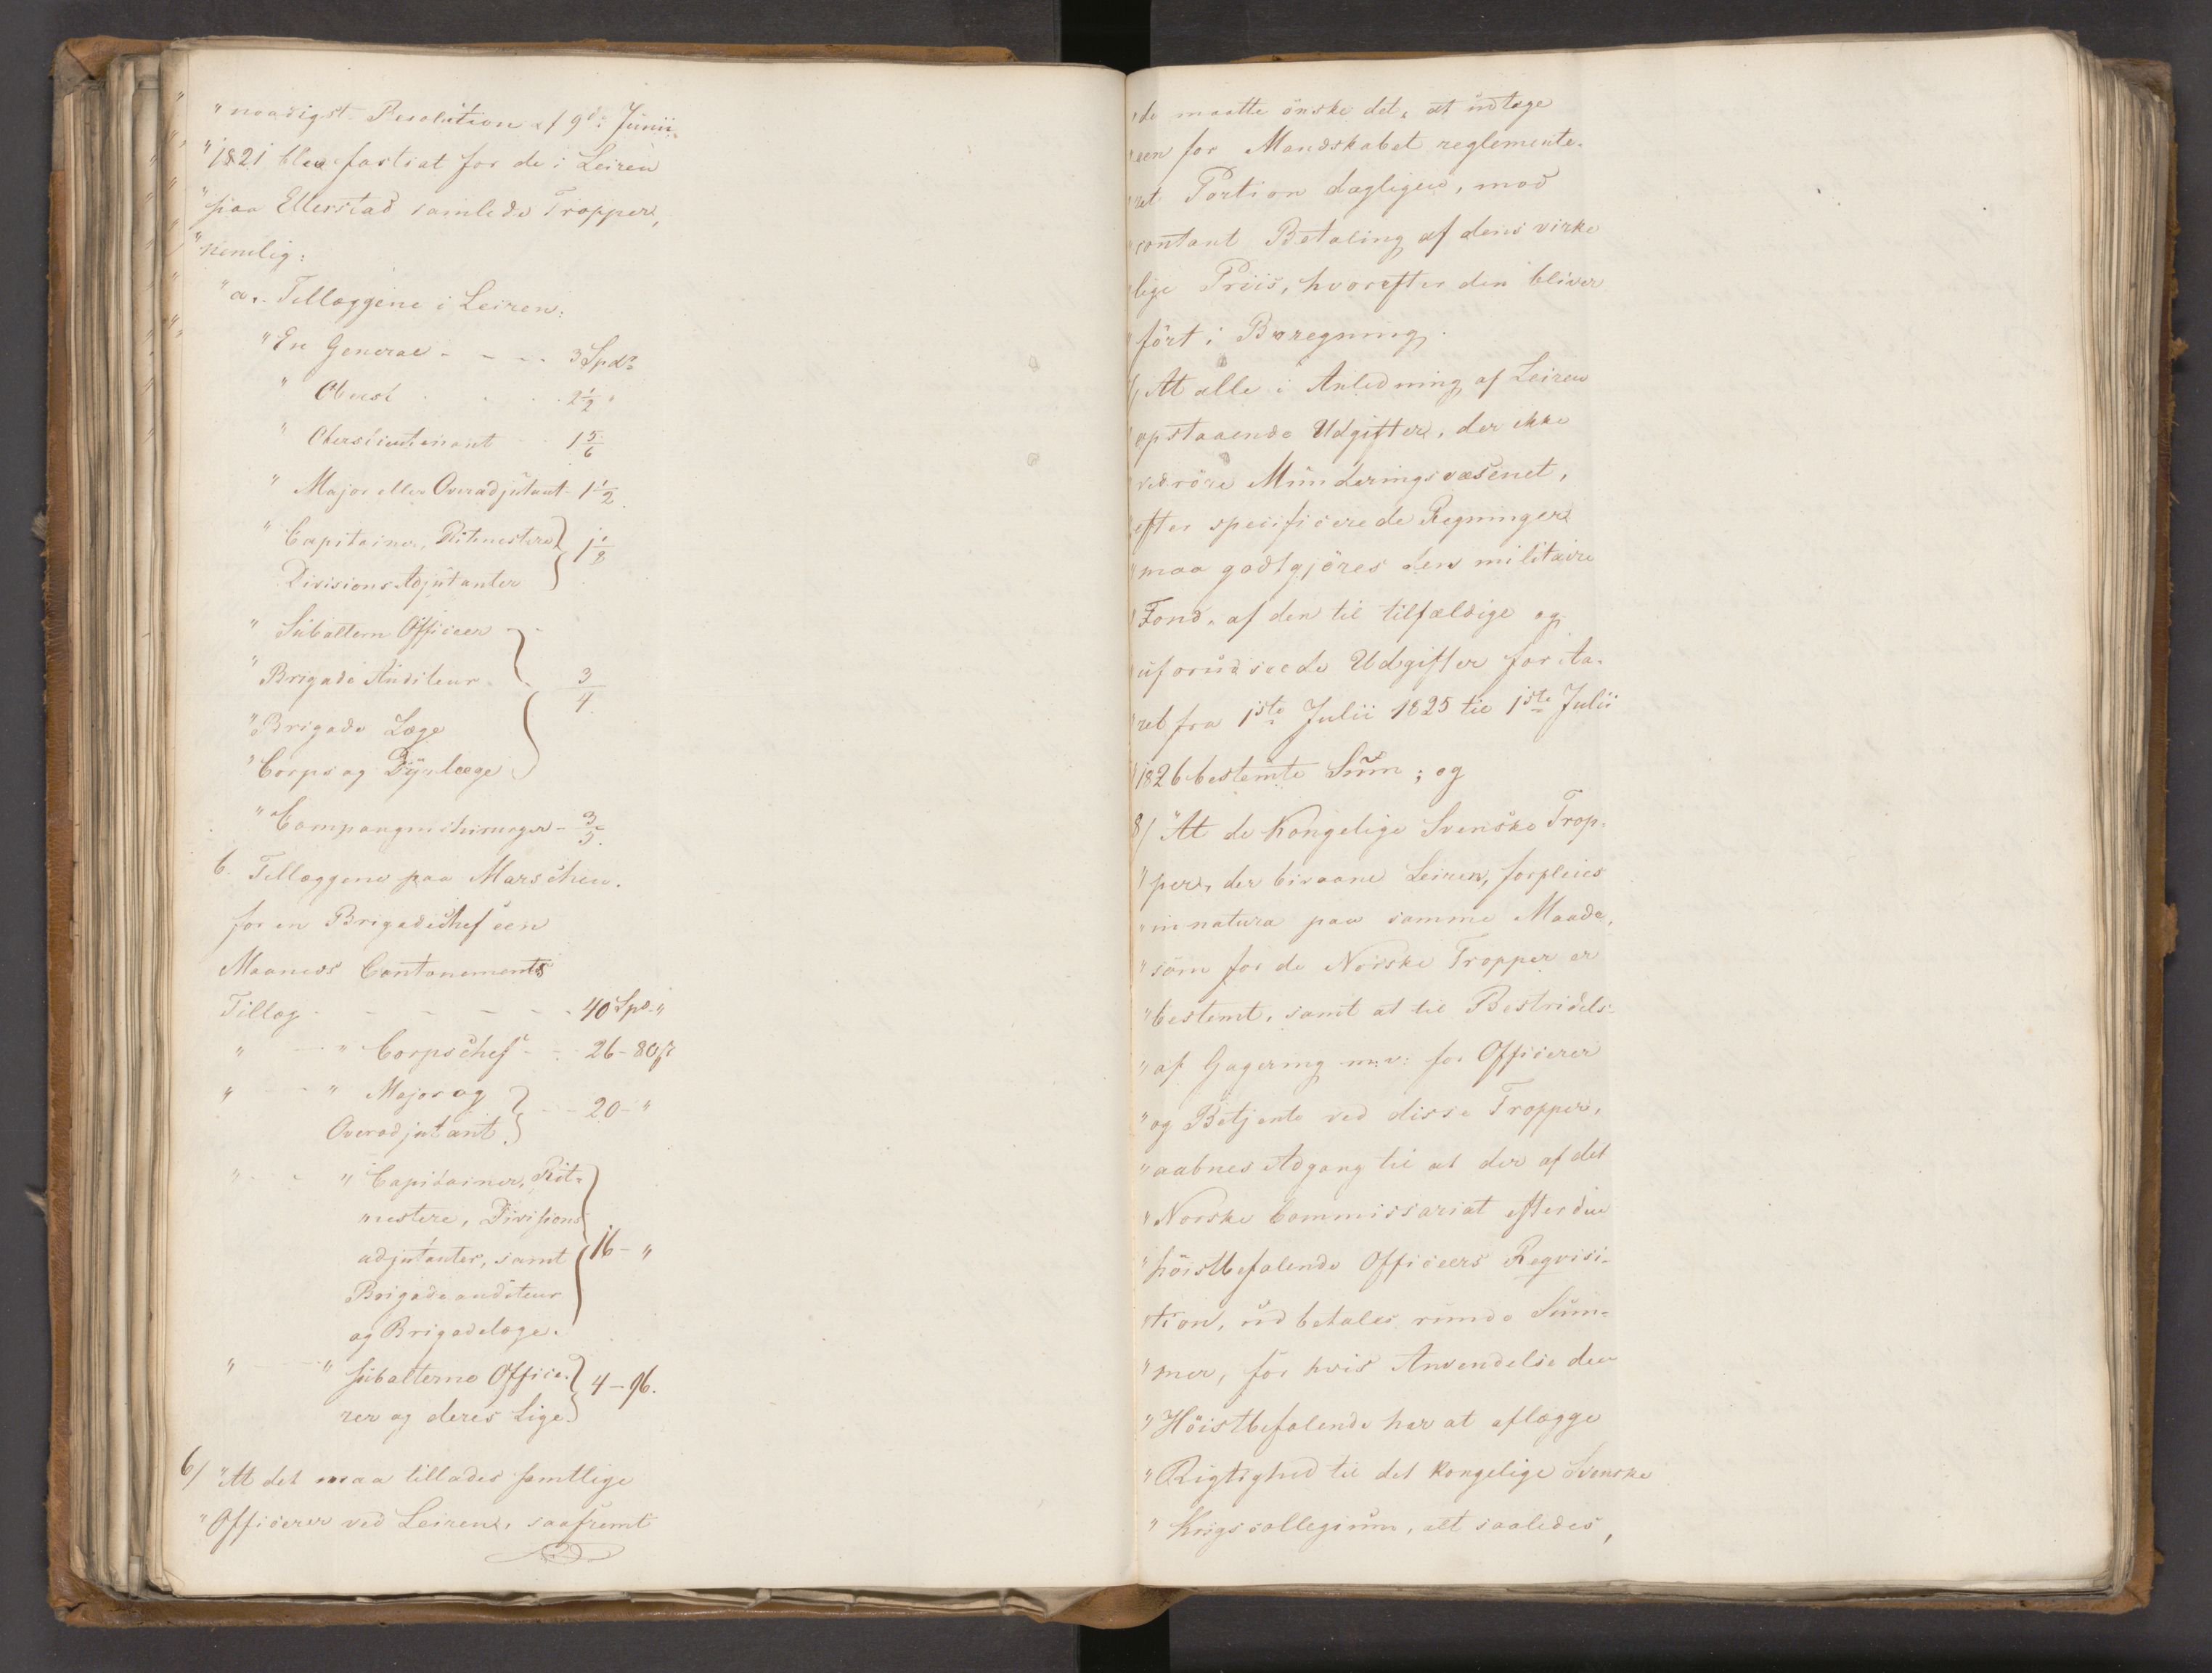 "naadigst Resolution af 9de Junii
"1821 blev fastsat for de i Leiren
"paa Ellerstad samlede Tropper,
"nemlig:
"a,. Tillæggene i Leiren:
"En General - - - - 3 Spd.
" Oberst . . . . 2 1/2 "
" Oberstlieutenant - - 1 5/6
" Major eller Overadjutant - 1 1/2
" Capitainer, Ritmestere
Divisions Adjutanter } 1 1/8
" Subaltern Officeer - -
" Brigade Auditeur - - } 3/4
" Brigade Læge
" Corps og Dyrlæge
" Compagniechirurger - 3/5.
b. Tillæggene paa Marschen.
for en Brigadechef een
Maaneds Cantonements
Tillæg - - - - - - 40 Spd. "
" - - " Corpschef - - 26 - 80 s
" - - " Major og
Overadjutant } - - 20 - "
" - - " Capitainer, Rit-
mestere, Divisions
adjutanter, samt } 16 - "
Brigadeauditeur
og Brigadelæge.
" - - " Subalterne Office-
rer og deres Lige. } 4 - 96.
6/ "At det maa tillades samtlige
"Officerer ved Leiren, saafremt
"de maatte önske det, at udtage
"een for Mandskabet reglemente-
"ret Portion dagligen, mod
"contant Betaling af dens virke
"lige Priis, hvorefter den bliver
"fört i Beregning.
"At alle i Anledning af Leiren
"opstaaende Udgifter, der ikke
"vedröre Munderingsvæsenet,
"efter specificerede Regninger
"maa godtgjöres den militaire
"Fond, af den til tilfældige og
"uforudseede Udgifter for Aa-
"ret fra 1ste Julii 1825 til 1ste Julii
"1826 bestemte Sum; og
8/ "At de Kongelige Svenske Trop-
"per, der bivaane Leiren, forpleies
"in natura paa samme Maade,
"som for de Norske Tropper er
"bestemt, samt at til Bestridelse
"af Gagering m: v: for Officerer
"og Betjente ved disse Tropper,
"aabnes Adgang til at der af det
"Norske Commissariat efter den
"höistbefalende Officeers Reqvisi-
"tion, udbetales runde Sum-
"mer, for hvis Anvendelse den
"Höistbefalende har at aflægge
"Rigtighed til det kongelige Svenske
"Krigscollegium, alt saaledes,